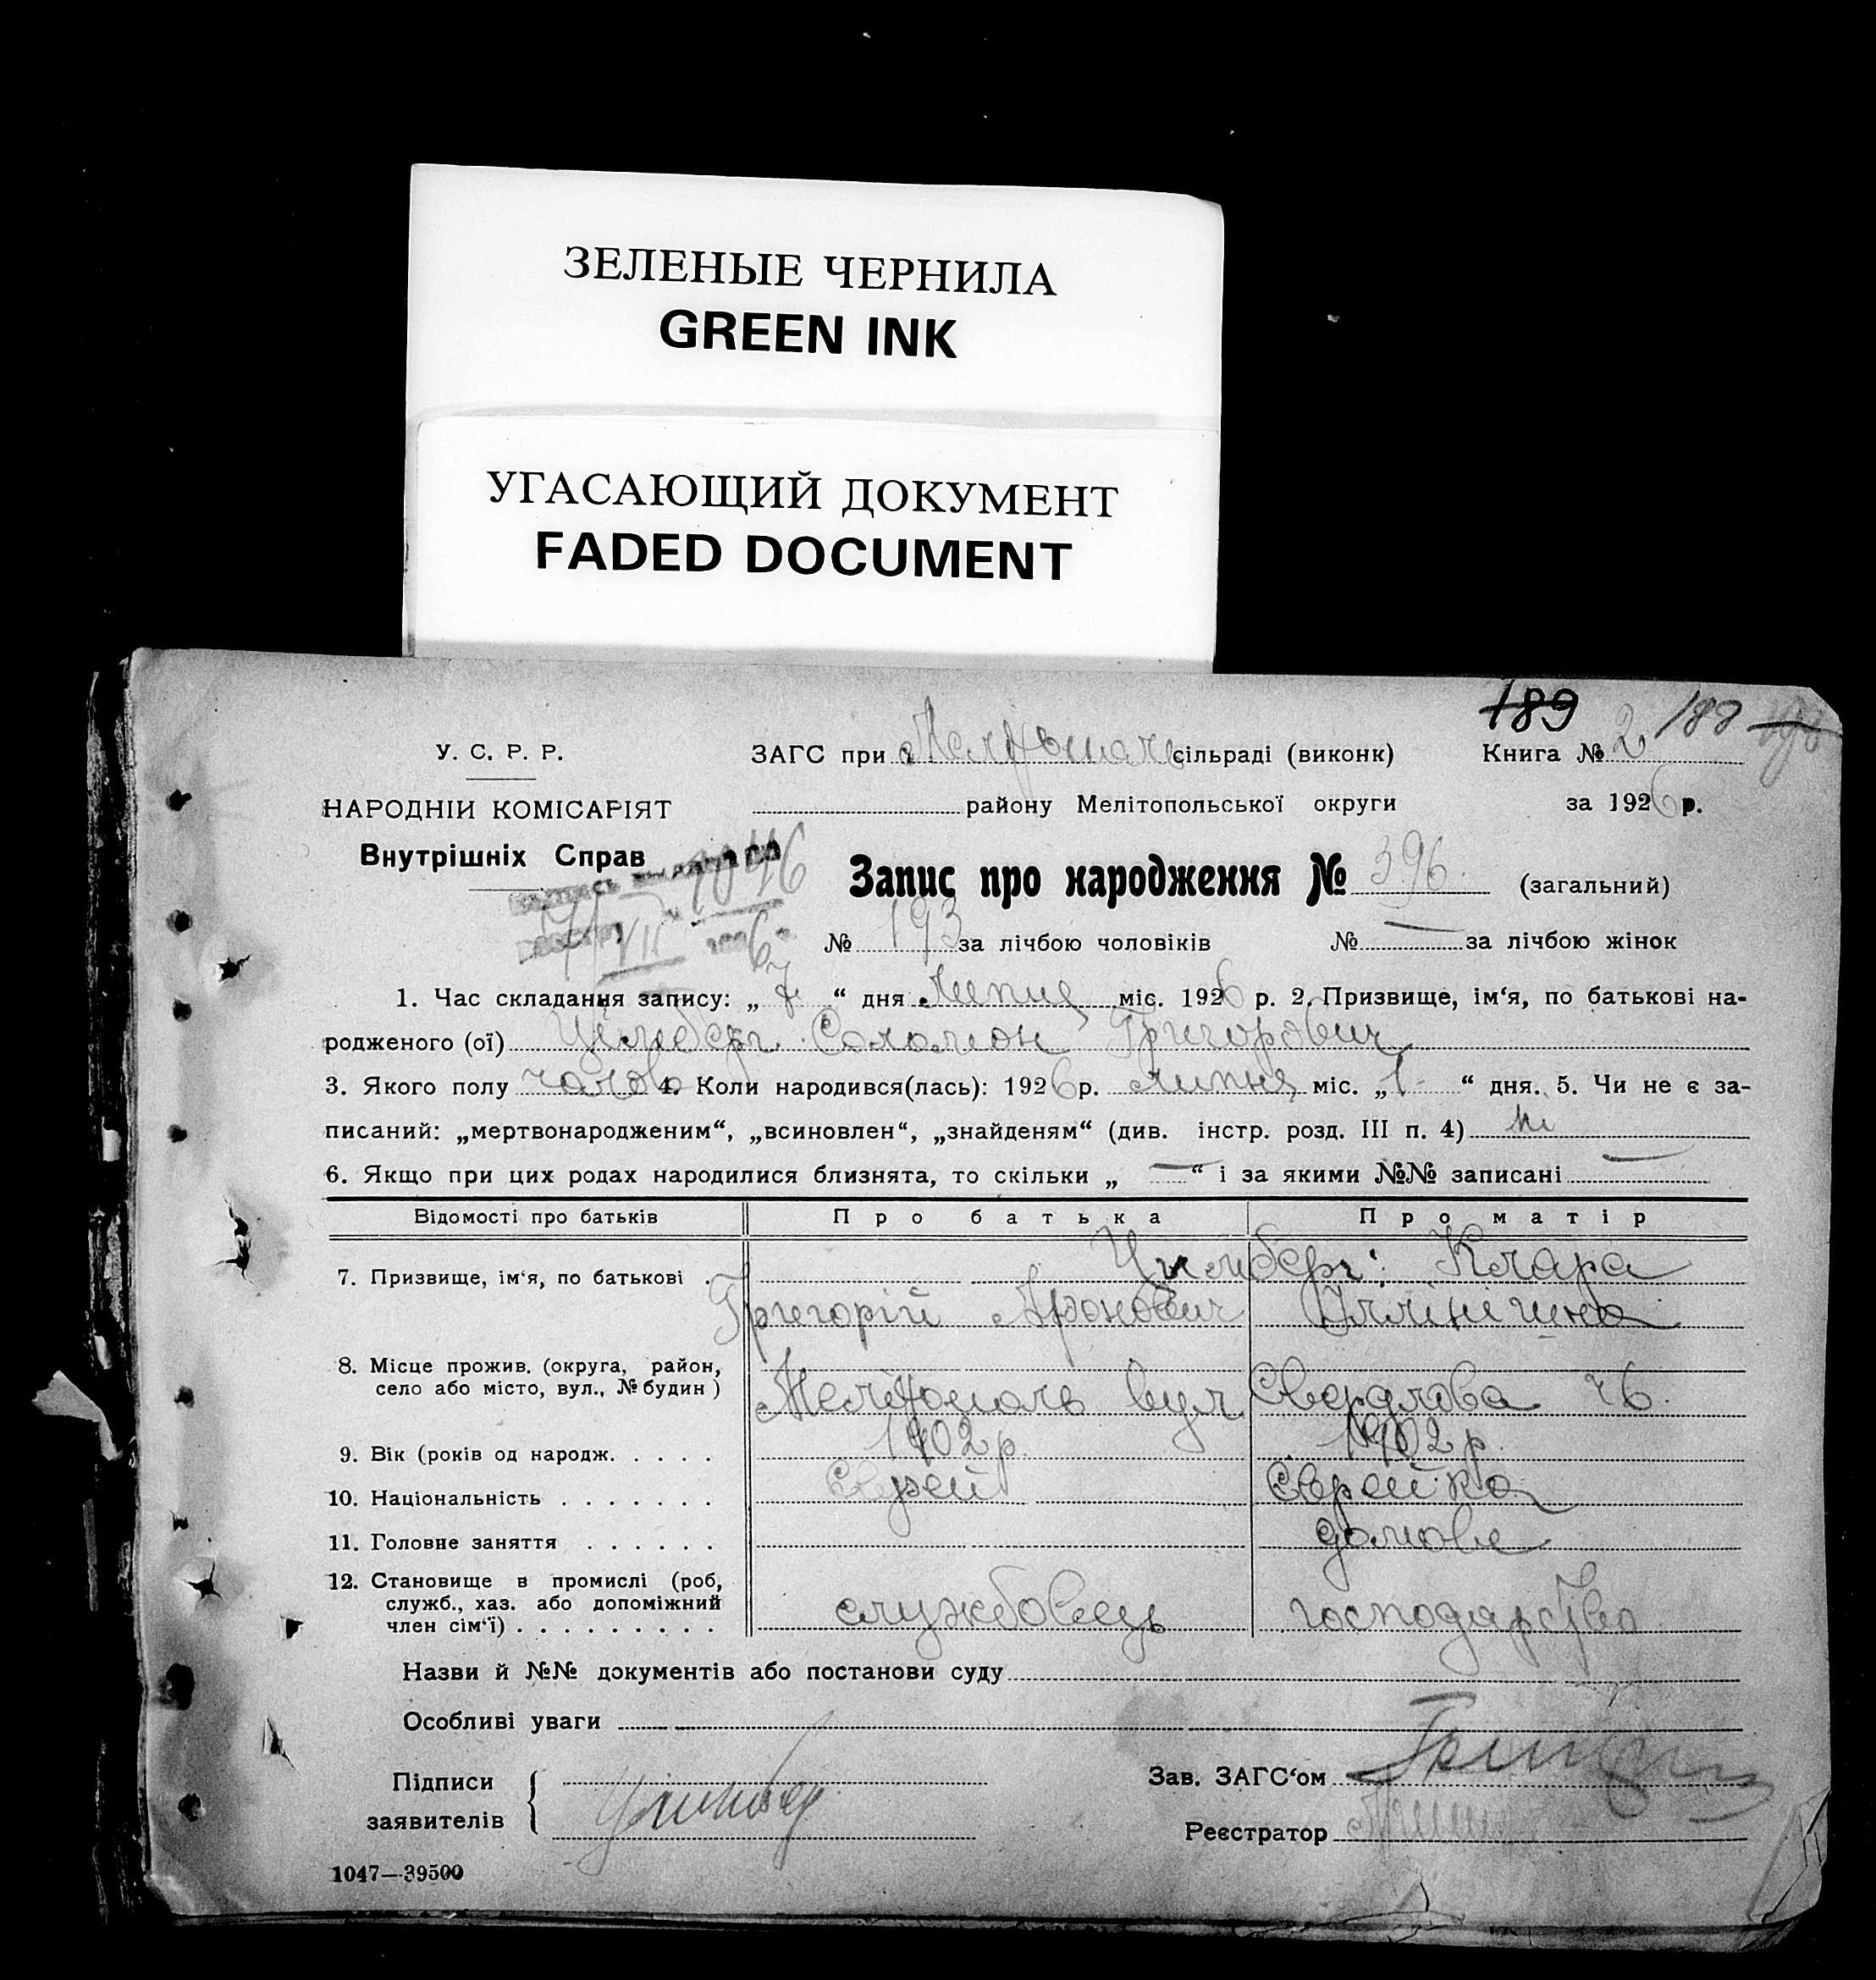 ЗЕЛЕНЫЕ ЧЕРНИЛА
GREEN INK
УГАСАЮЩИЙ ДОКУМЕНТ
FADED DOCUMENT
189 188
У. С. Р. Р. ЗАГС при сільраді (виконк) Книга № 2
НАРОДНІЙ КОМІСАРІЯТ району Мелітопольської округи за 1926 р.
Внутрішніх Справ
Запис про народження № 396. (загальний)
№ 193 за лічбою чоловіків № — за лічбою жінок
1. Час складання запису: „ 7 “ дня Липня міс. 1926 р. 2. Призвище, ім‘я, по батькові на-
родженого (ої) Цімберг Соломон Григорович
3. Якого полу чолов 4. Коли народився(лась): 1926 р. липня міс. „ 1 “ дня. 5. Чи не є за-
писаний: „мертвонародженим“, „всиновлен“, „знайденям“ (див. інстр. розд. III п. 4) ні
6. Якщо при цих родах народилися близнята, то скільки „ — “ і за якими №№ записані —
Відомості про батьків Про батька Про матір
7. Призвище, ім‘я, по батькові . Цимберг: Клара
Григорій Аронович
8. Місце прожив. (округа, район,
село або місто, вул., № будин ) Мелітополь вул Свердлова 76.
9. Вік (років од народж. . . . . 1902 р. 1902 р.
10. Національність . . . . . . . Єврей Єврейка
11. Головне заняття . . . . . . домове
12. Становище в промислі (роб,
служб., хаз. або допоміжний службовець господарство
член сім‘ї) . . . . . . . . .
Назви й №№ документів або постанови суду
Особливі уваги
Підписи Зав. ЗАГС‘ом
заявителів Реєстратор
1047—39500